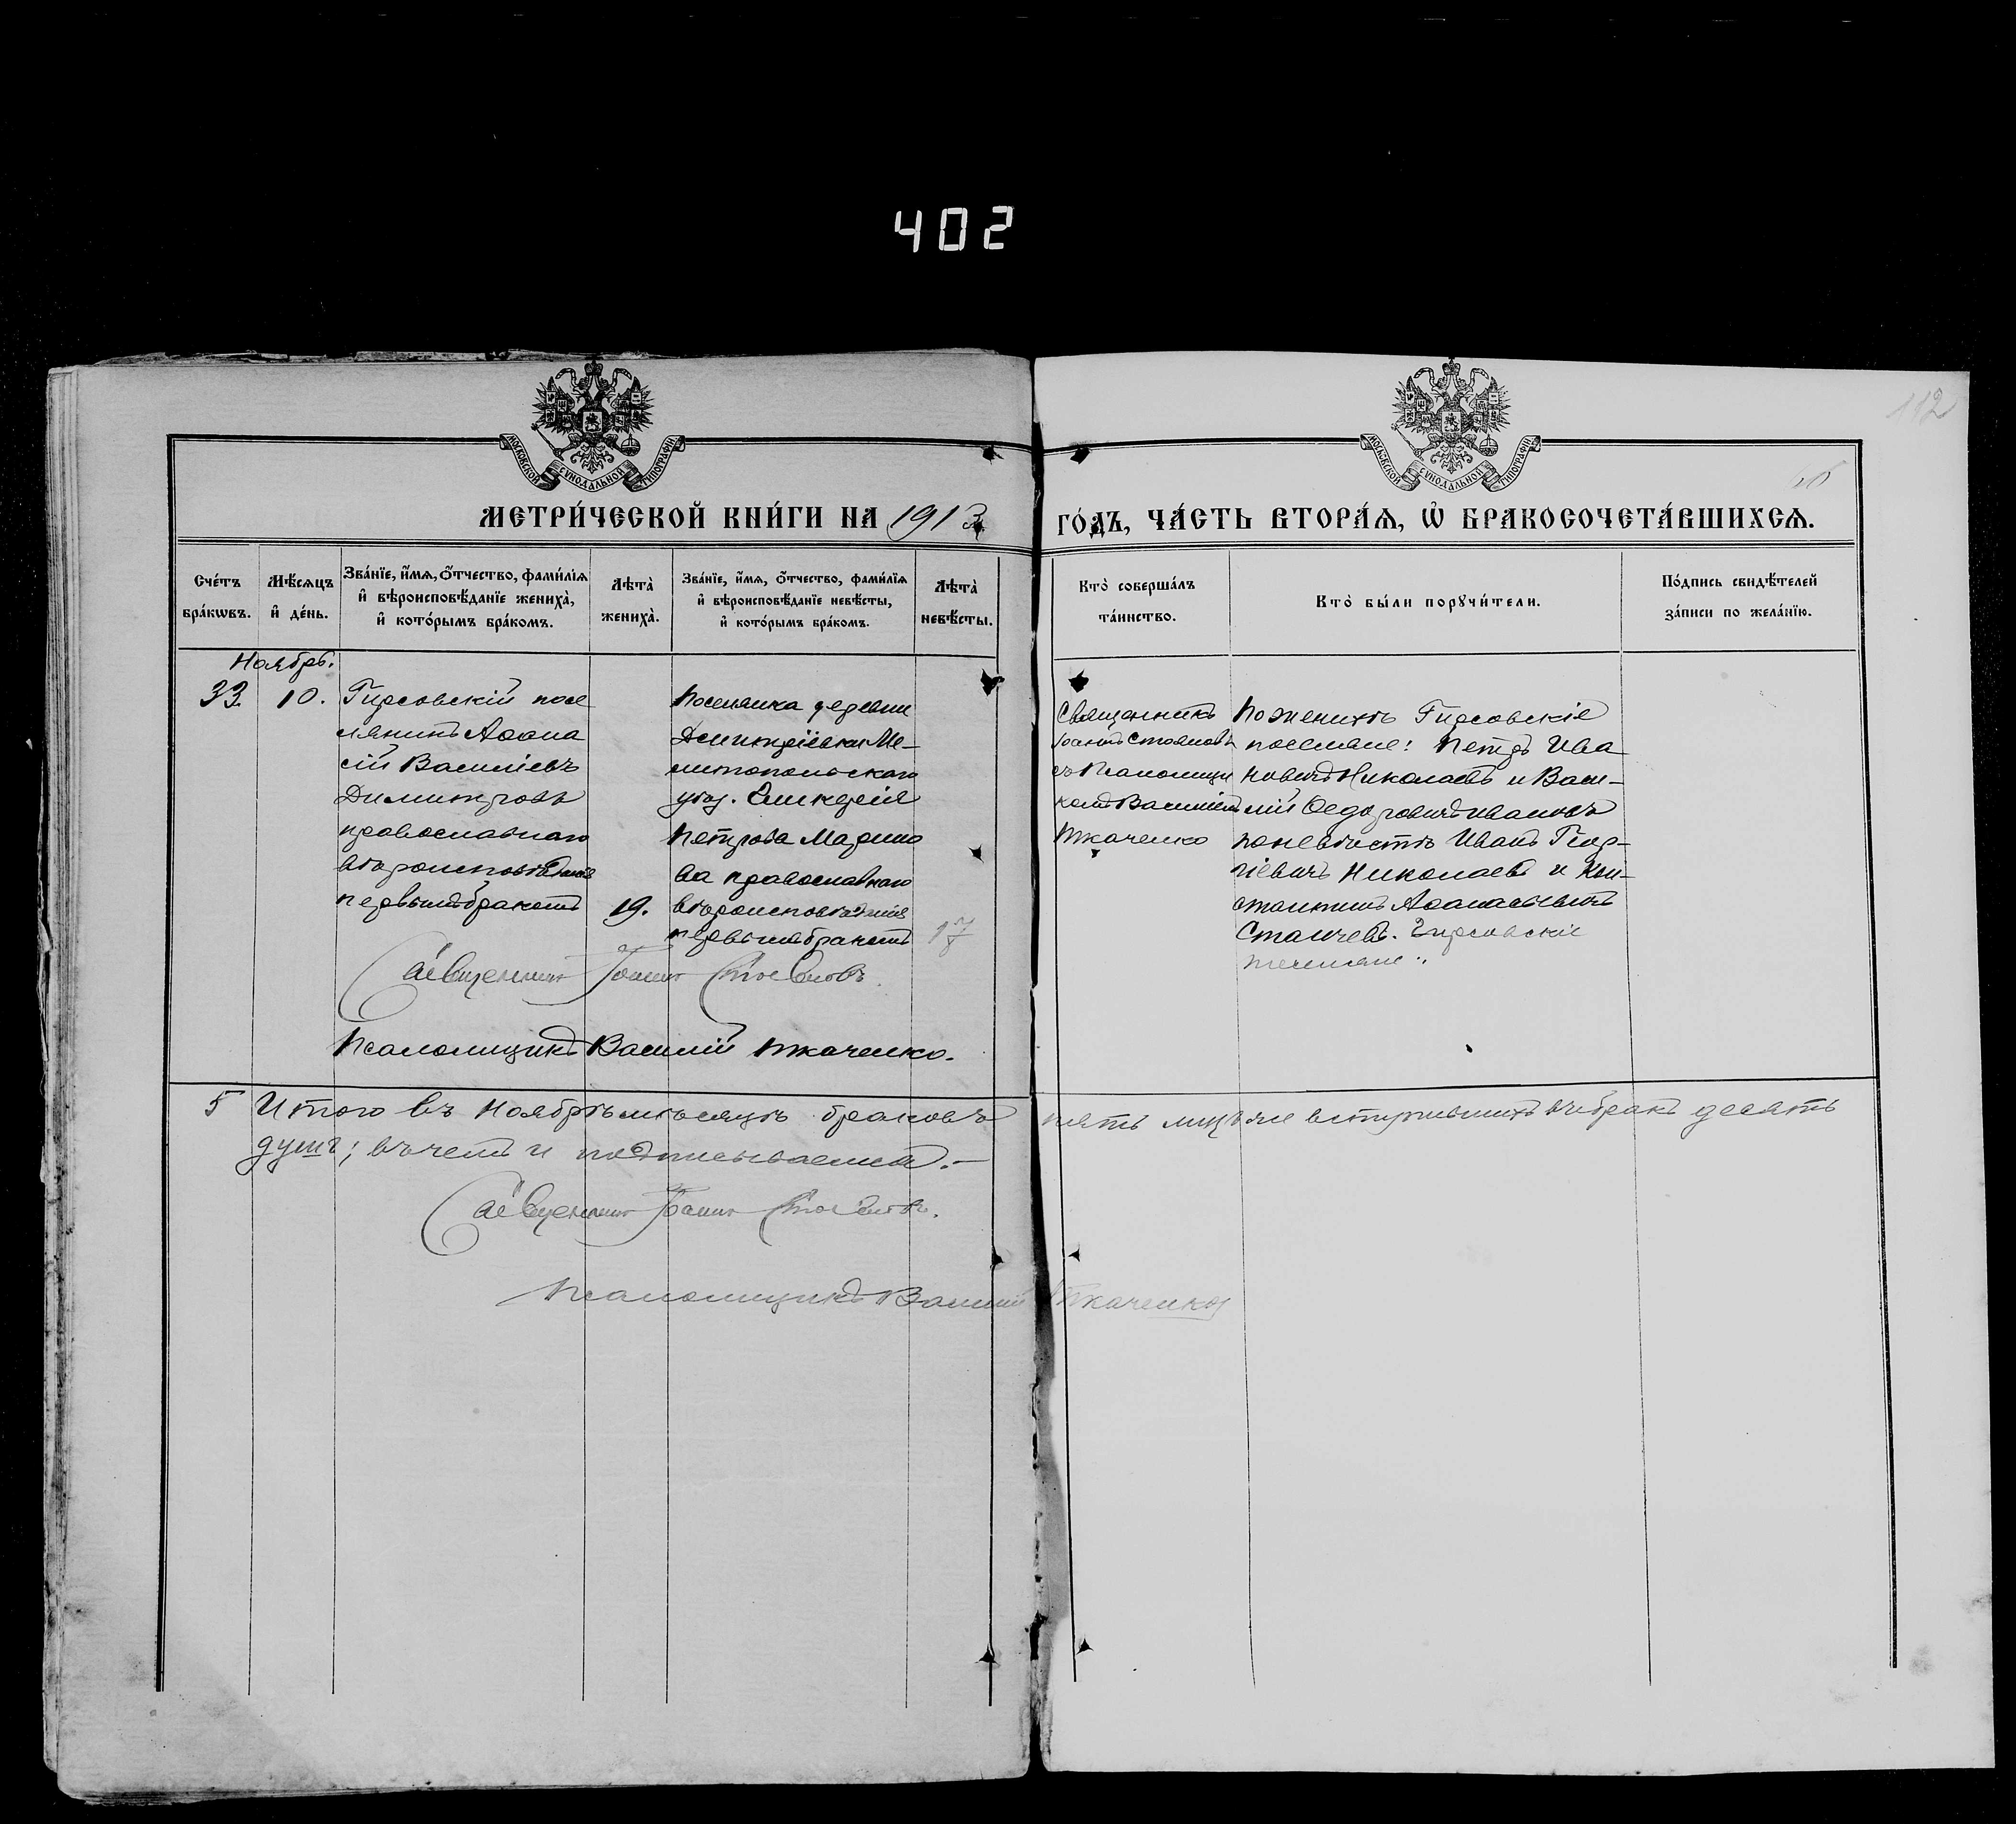 402
112
МОСКОВСКОЙ СѴНОДАЛЬНОЙ ТИПОГРАФІИ
МОСКОВСКОЙ СѴНОДАЛЬНОЙ ТИПОГРАФІИ
МЕТРИ́ЧЕСКОЙ КНИ́ГИ НА 1913
ГО́ДЪ, ЧА́СТЬ ВТОРА́Ѧ, Ѡ҆ БРАКОСОЧЕТА́ВШИХСѦ.
Сче́тъ
бра́кѡвъ.
Мѣ́сѧцъ
и҆ де́нь.
Зва́нїе, и҆́мѧ, ѻ҆́тчество, фами́лїѧ
и҆ вѣроисповѣ́данїе жениха̀,
и҆ кото́рымъ бра́комъ.
Лѣта̀
жениха̀.
Зва́нїе, и҆́мѧ, ѻ҆́тчество, фами́лїѧ
и҆ вѣроисповѣ́данїе невѣ́сты,
и҆ кото́рымъ бра́комъ.
Лѣта̀
невѣ́сты.
Кто̀ соверша́лъ
та́инство.
Кто̀ бы́ли порꙋчи́тели.
По́дпись свидѣ́телей
за́писи по жела́нїю.
Ноябрь.
33. 10.
Гирсовскій посе
лянинъ Аѳана
сій Василіевъ
Димитровъ
православнаго
вѣроисповѣданія
первымъ бракомъ
19.
Поселянка деревни
Дмитріевки Ме-
литопольскаго
уѣз. Гликерія
Петрова Марино
ва православнаго
вѣроисповѣданія
первымъ бракомъ
17
Священникъ
Іоаннъ Стояновъ
съ Псаломщи
комъ Василіемъ
Ткаченко
По женихѣ Гирсовскіе
поселяне: Петръ Ива
новичъ Николаевъ и Васи-
лій Ѳедоровичъ Ивановъ
по невѣстѣ Иванъ Геор-
гіевичъ Николаевъ и Кон-
стантинъ Аѳанасьевичъ
Станчевъ. Гирсовскіе
поселяне.
Священникъ Іоаннъ Стояновъ.
Псаломщикъ Василій Ткаченко.
5 Итого въ Ноябрѣ мѣсяцѣ браковъ пять лицъ же вступившихъ въ бракъ десять
душъ; въ чемъ и подписываемся.-
Священникъ Іоаннъ Стояновъ.
Псаломщикъ Василій Ткаченко